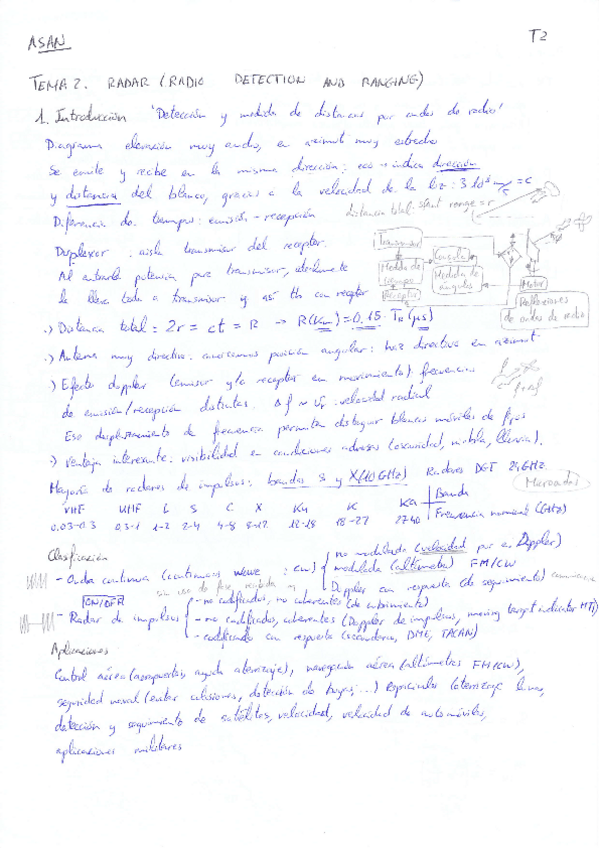 ASAN
T2
TEMA 2. RADAR (RADIO DETECTION AND RANGING)
1. Introducción 'Detección y medida de distancias por ondas de radio'
Diagrama elevación muy ancho, en azimut muy estrecho
Se emite y recibe en la misma dirección: eco → indica dirección
y distancia del blanco, gracias a la velocidad de la luz: 3·10⁸ m/s = c
Diferencia de tiempos: emisión - recepción distancia total: slant range = r
Duplexor: aisla transmisor del receptor.
Al entrarle potencia para transmitir, idealmente
la lleva toda a transmisor y así tb con receptor
Transmisor
Consola
Medida de tiempo
Medida de ángulos
Receptor
Motor
Reflexiones de ondas de radio
·) Distancia total: 2r = ct = R → R(Km) = 0.15 · TR (μs)
·) Antena muy directiva: conocemos posición angular: haz directivo en azimut
·) Efecto doppler (emisor y/o receptor en movimiento) frecuencias
de emisión/recepción distintas. Δf ~ vr: velocidad radial
Ese desplazamiento de frecuencia permite distinguir blancos móviles de fijos
·) Ventaja interesante: visibilidad en condiciones adversas (oscuridad, niebla, lluvia).
Mayoría de radares de impulsos: bandas S y X (10 GHz) Radares DGT 24 GHz.
Mercados
VHF UHF L S C X Ku K Ka Banda
0.03-0.3 0.3-1 1-2 2-4 4-8 8-12 12-18 18-27 27-40 Frecuencia nominal (GHz)
Clasificación
- Onda continua (continuous wave: cw) no modulada (velocidad por ej. Doppler)
modulada (altímetro) FM/CW
Doppler con respuesta (de seguimiento)
- Radar de impulsos - no codificados, no coherentes (de cubrimiento)
- no codificados, coherentes (Doppler de impulsos, moving target indicator MTI)
- codificado con respuesta (secundarios, DME, TACAN)
Aplicaciones
Control aéreo (aeropuertos, ayuda aterrizaje), navegación aérea (altímetros FM/CW),
seguridad naval (evitar colisiones, detección de boyas...) espaciales (aterrizaje luna,
detección y seguimiento de satélites, velocidad, velocidad de automóviles,
aplicaciones militares